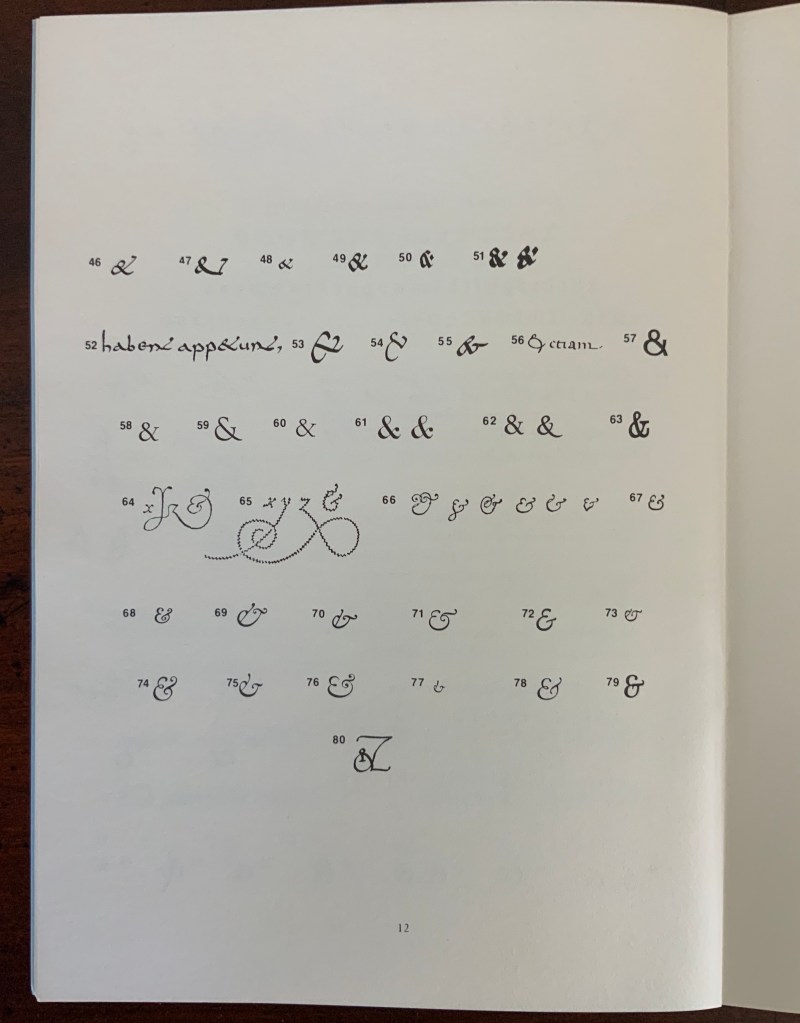 46 & 47 & 48 & 49 & 50 & 51 & &
52 haben& app&un&, 53 & 54 & 55 & 56 & etiam. 57 &
58 & 59 & 60 & 61 & & 62 & & 63 &
64 x y z & 65 x y z & 66 & & & & & & 67 &
68 & 69 & 70 & 71 & 72 & 73 &
74 & 75 & 76 & 77 & 78 & 79 &
80 &
12